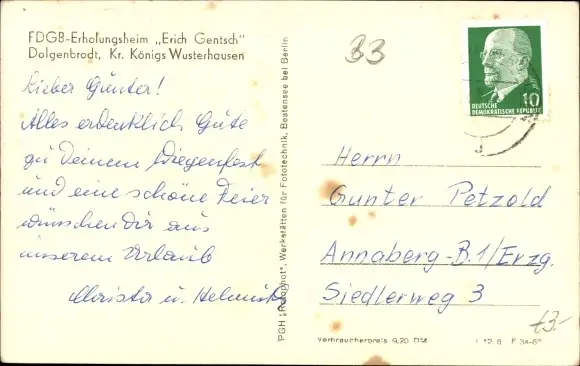 FDGB-Erholungsheim „Erich Gentsch"
Dolgenbrodt, Kr. Königs Wusterhausen
Lieber Günter!
Alles erdenklich Gute
zu Deinem Wiegenfest
und eine schöne Feier
wünschen Dir aus
unserem Urlaub
Christa u. Helmut
PGH „Rotophot", Werkstätten für Fototechnik, Bestensee bei Berlin
B3
10
DEUTSCHE
DEMOKRATISCHE REPUBLIK
Herrn
Gunter Petzold
Annaberg-B.1/Erzg.
Siedlerweg 3
Verbraucherpreis 0,20 DM